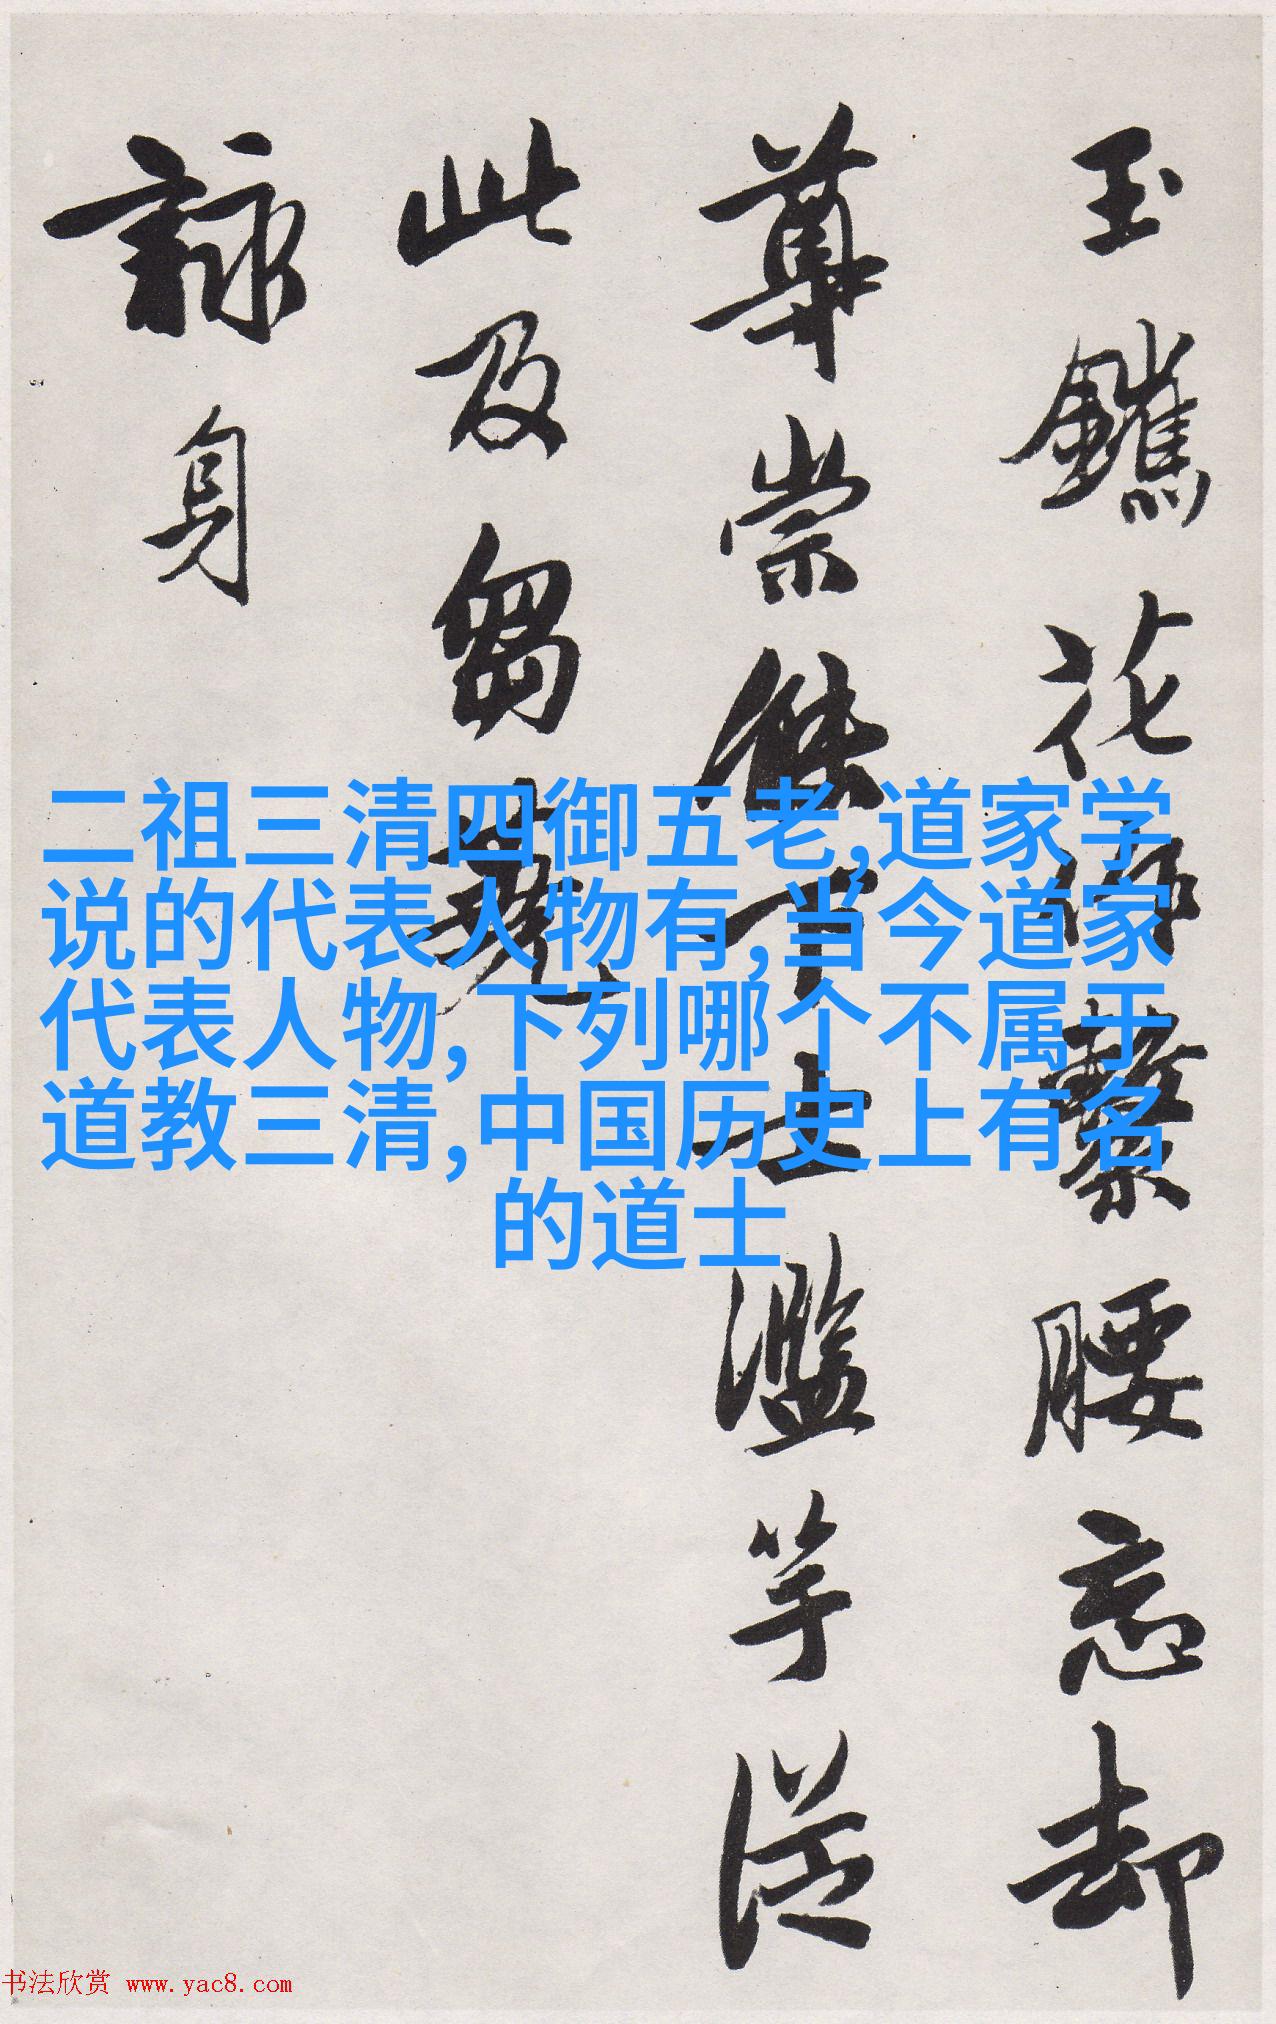 玉鑣花浮繫腰忘却
萃崇傑下士濫竽従
此及芻蕘
詠身
二祖三清四御五老,道家学
说的代表人物有,当今道家
代表人物,下列哪个不属于
道教三清,中国历史上有名
的道士
书法欣赏 www.yac8.com